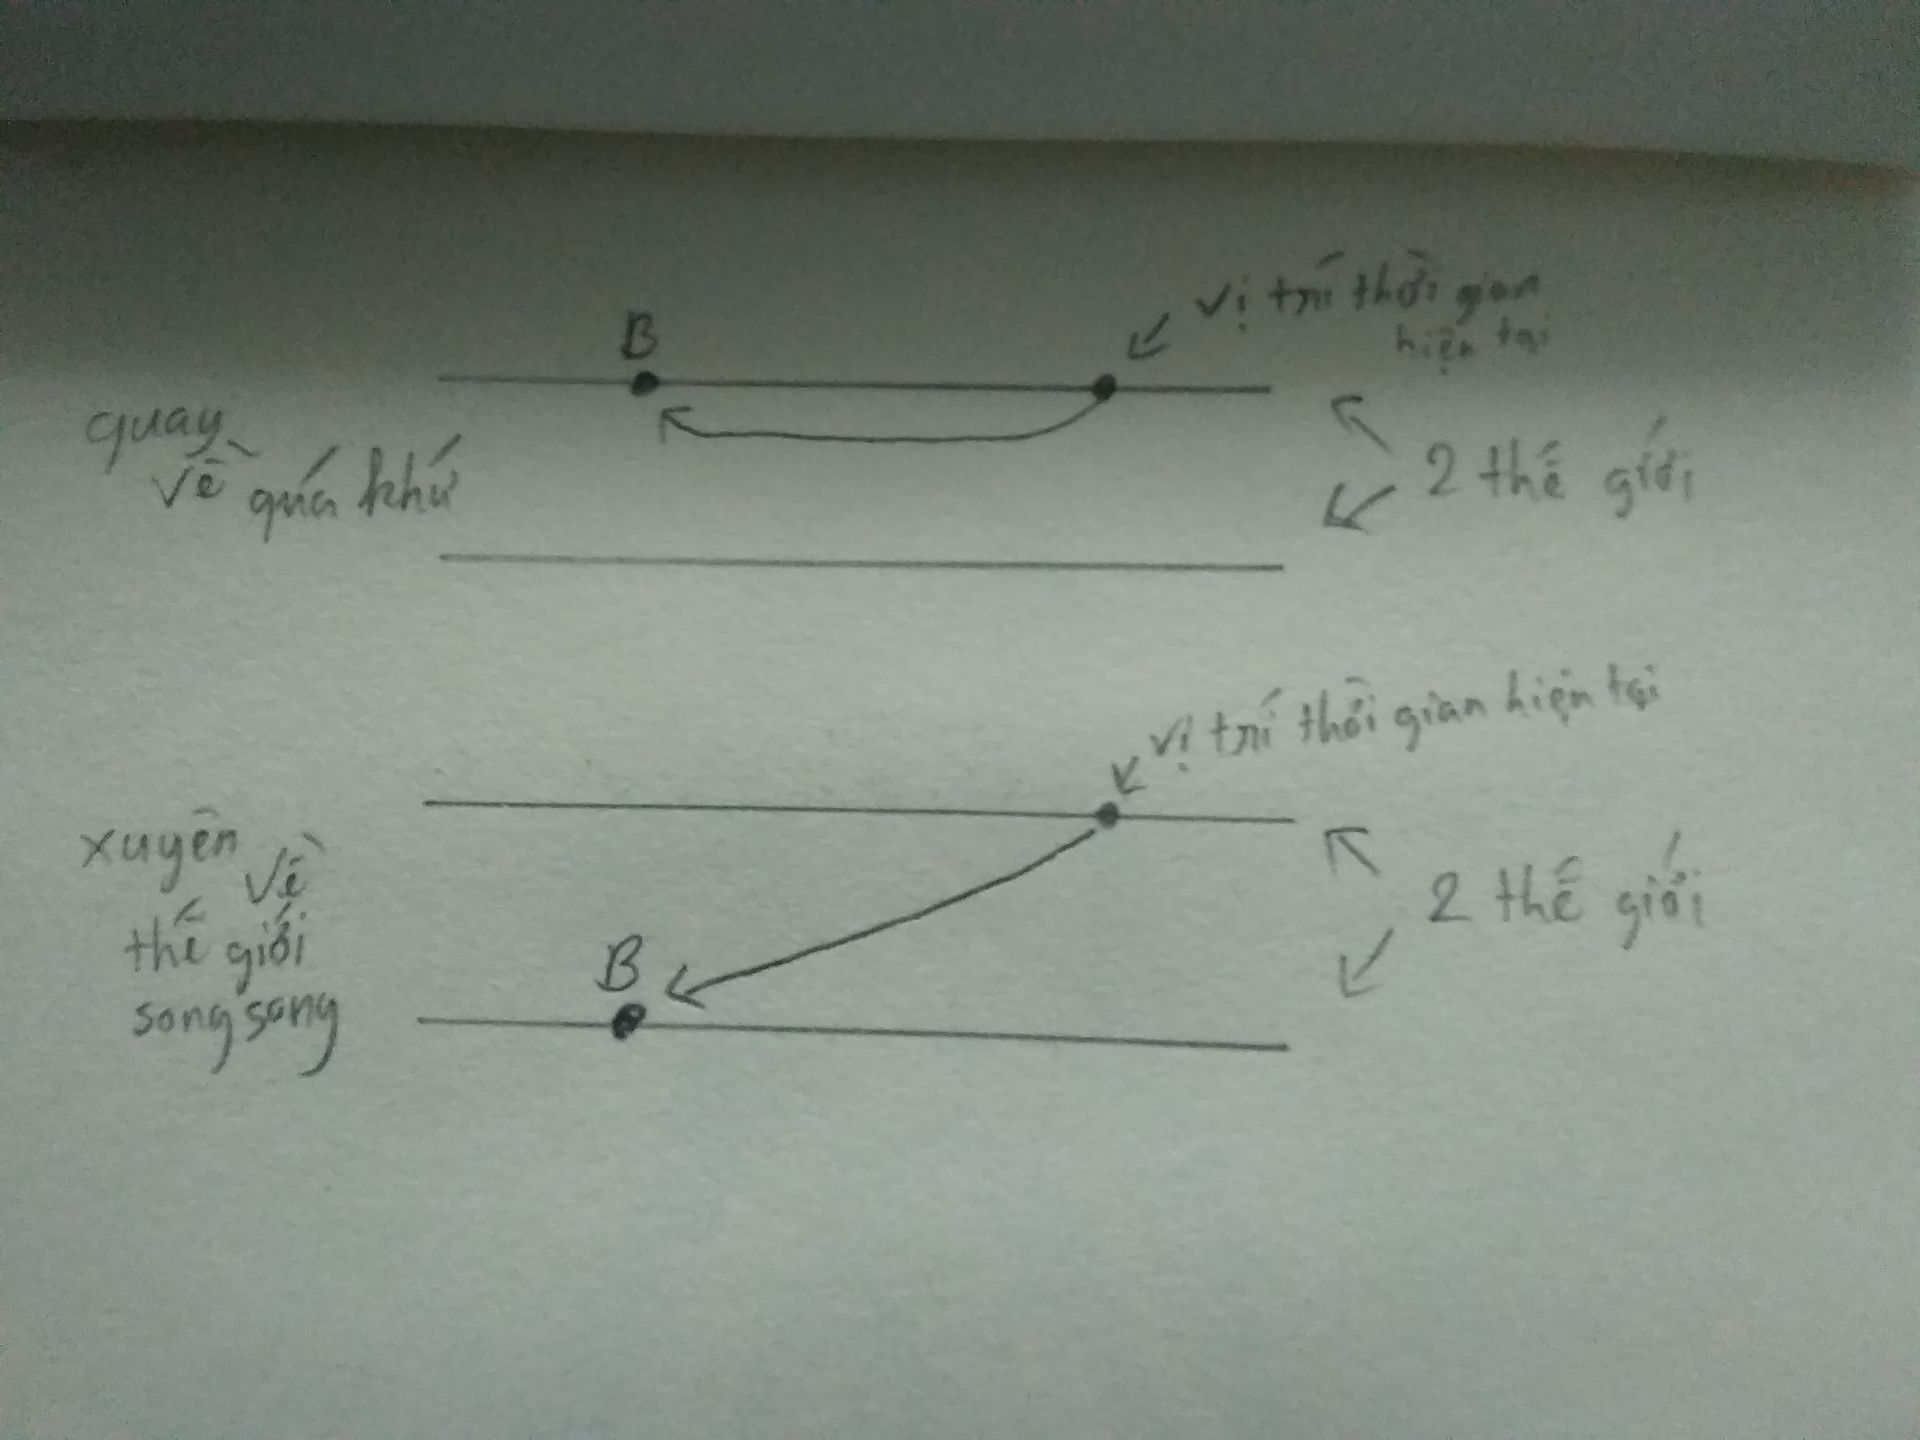 B
vị trí thời gian
hiện tại
quay
về quá khứ
2 thế giới
vị trí thời gian hiện tại
xuyên về
thế giới
song song
B
2 thế giới